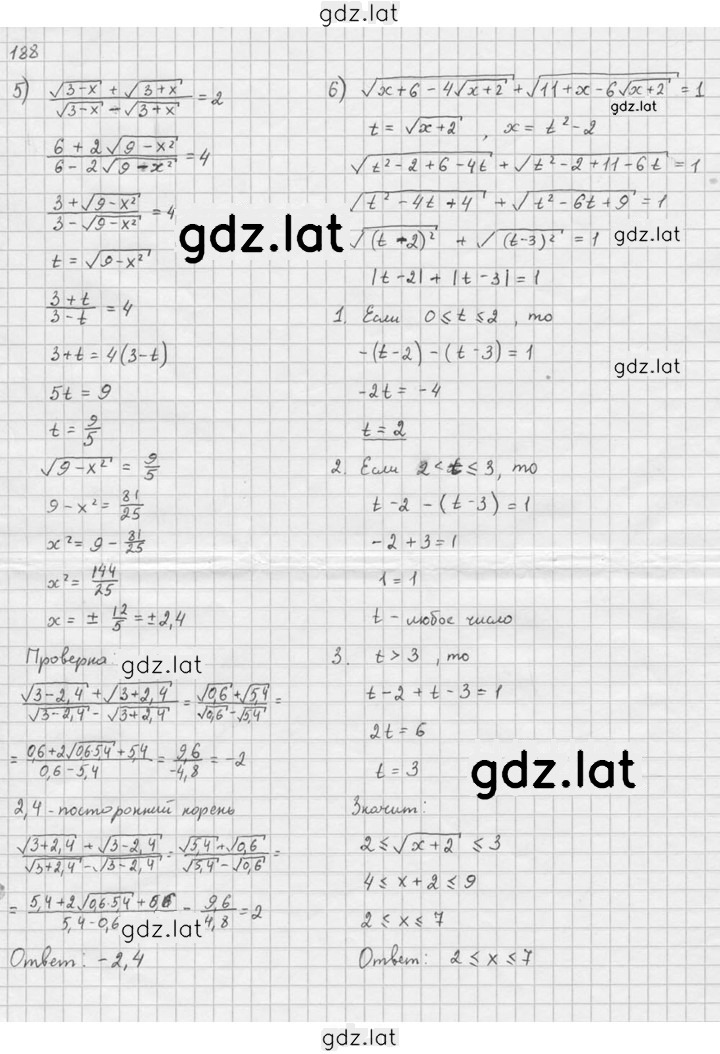 gdz.lat
188
5) (√(3-x) + √(3+x))/(√(3-x) - √(3+x)) = 2
(6 + 2√(9-x²))/(6 - 2√(9-x²)) = 4
(3 + √(9-x²))/(3 - √(9-x²)) = 4
gdz.lat
t = √(9-x²)
(3+t)/(3-t) = 4
3+t = 4(3-t)
5t = 9
t = 9/5
√(9-x²) = 9/5
9 - x² = 81/25
x² = 9 - 81/25
x² = 144/25
x = ± 12/5 = ±2,4
Проверка:
gdz.lat
(√(3-2,4) + √(3+2,4))/(√(3-2,4) - √(3+2,4)) = (√0,6 + √5,4)/(√0,6 - √5,4) =
= (0,6+2√(0,6·5,4)+5,4)/(0,6-5,4) = 9,6/(-4,8) = -2
2,4 - посторонний корень
(√(3+2,4) + √(3-2,4))/(√(3+2,4) - √(3-2,4)) = (√5,4 + √0,6)/(√5,4 - √0,6) =
= (5,4+2√(0,6·5,4)+0,6)/(5,4-0,6) - 9,6/4,8 = 2
gdz.lat
Ответ: -2,4
6) √(x+6-4√(x+2)) + √(11+x-6√(x+2)) = 1
gdz.lat
t = √(x+2), x = t²-2
√(t²-2+6-4t) + √(t²-2+11-6t) = 1
√(t²-4t+4) + √(t²-6t+9) = 1
√((t-2)²) + √((t-3)²) = 1
gdz.lat
|t-2| + |t-3| = 1
1. Если 0 ≤ t ≤ 2, то
-(t-2) - (t-3) = 1
gdz.lat
-2t = -4
t = 2
2. Если 2 < t ≤ 3, то
t-2 - (t-3) = 1
-2+3 = 1
1 = 1
t - любое число
3. t > 3, то
t-2 + t-3 = 1
2t = 6
t = 3
gdz.lat
Значит:
2 ≤ √(x+2) ≤ 3
4 ≤ x+2 ≤ 9
2 ≤ x ≤ 7
Ответ: 2 ≤ x ≤ 7
gdz.lat